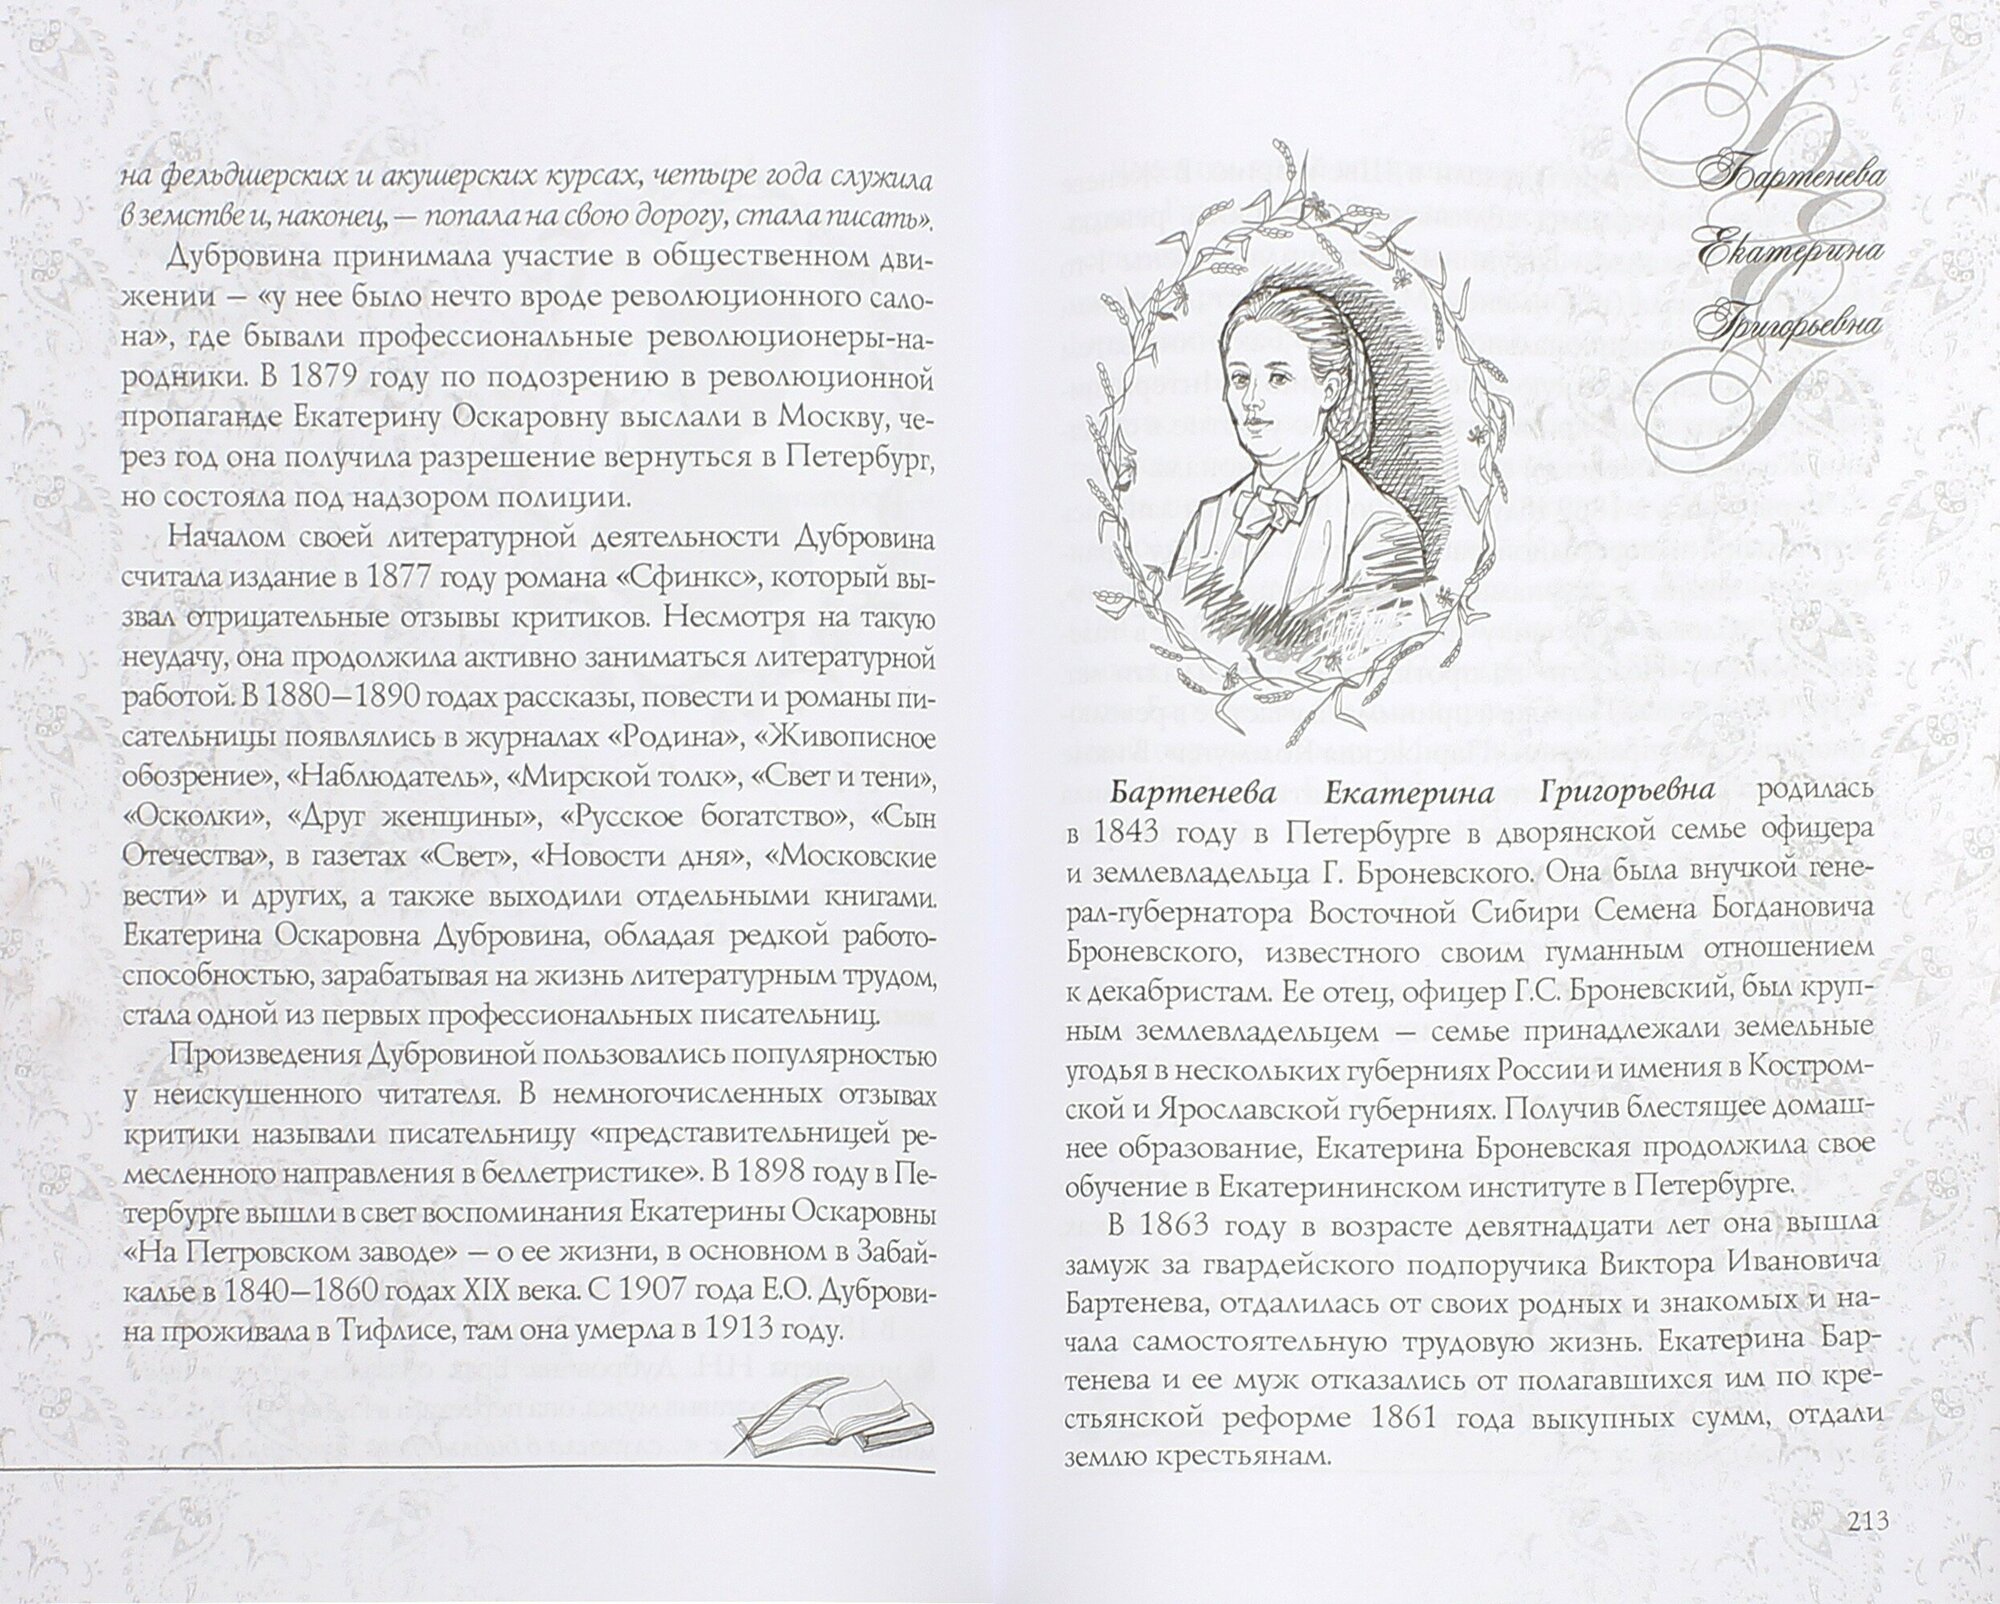 на фельдшерских и акушерских курсах, четыре года служила
в земстве и, наконец, — попала на свою дорогу, стала писать».
Дубровина принимала участие в общественном дви-
жении — «у нее было нечто вроде революционного сало-
на», где бывали профессиональные революционеры-на-
родники. В 1879 году по подозрению в революционной
пропаганде Екатерину Оскаровну выслали в Москву, че-
рез год она получила разрешение вернуться в Петербург,
но состояла под надзором полиции.
Началом своей литературной деятельности Дубровина
считала издание в 1877 году романа «Сфинкс», который вы-
звал отрицательные отзывы критиков. Несмотря на такую
неудачу, она продолжила активно заниматься литературной
работой. В 1880—1890 годах рассказы, повести и романы пи-
сательницы появлялись в журналах «Родина», «Живописное
обозрение», «Наблюдатель», «Мирской толк», «Свет и тени»,
«Осколки», «Друг женщины», «Русское богатство», «Сын
Отечества», в газетах «Свет», «Новости дня», «Московские
вести» и других, а также выходили отдельными книгами.
Екатерина Оскаровна Дубровина, обладая редкой работо-
способностью, зарабатывая на жизнь литературным трудом,
стала одной из первых профессиональных писательниц.
Произведения Дубровиной пользовались популярностью
у неискушенного читателя. В немногочисленных отзывах
критики называли писательницу «представительницей ре-
месленного направления в беллетристике». В 1898 году в Пе-
тербурге вышли в свет воспоминания Екатерины Оскаровны
«На Петровском заводе» — о ее жизни, в основном в Забай-
калье в 1840—1860 годах XIX века. С 1907 года Е.О. Дуброви-
на проживала в Тифлисе, там она умерла в 1913 году.
Б
Е
Г
Бартенева
Екатерина
Григорьевна
Бартенева Екатерина Григорьевна родилась
в 1843 году в Петербурге в дворянской семье офицера
и землевладельца Г. Броневского. Она была внучкой гене-
рал-губернатора Восточной Сибири Семена Богдановича
Броневского, известного своим гуманным отношением
к декабристам. Ее отец, офицер Г.С. Броневский, был круп-
ным землевладельцем — семье принадлежали земельные
угодья в нескольких губерниях России и имения в Костром-
ской и Ярославской губерниях. Получив блестящее домаш-
нее образование, Екатерина Броневская продолжила свое
обучение в Екатерининском институте в Петербурге.
В 1863 году в возрасте девятнадцати лет она вышла
замуж за гвардейского подпоручика Виктора Ивановича
Бартенева, отдалилась от своих родных и знакомых и на-
чала самостоятельную трудовую жизнь. Екатерина Бар-
тенева и ее муж отказались от полагавшихся им по кре-
стьянской реформе 1861 года выкупных сумм, отдали
землю крестьянам.
213